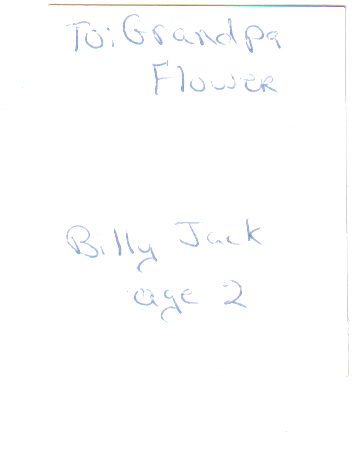 To: Grandpa
Flower
Billy Jack
age 2